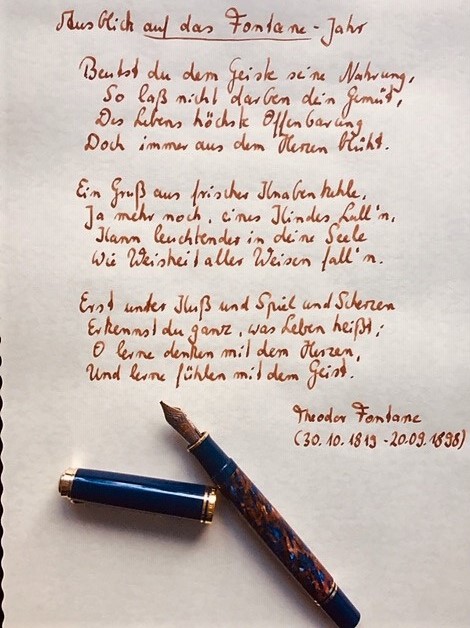 Ausblick auf das Fontane-Jahr
Beutst du dem Geiste seine Nahrung,
So laß nicht darben dein Gemüt,
Des Lebens höchste Offenbarung
Doch immer aus dem Herzen blüht.
Ein Gruß aus frischer Knabenkehle,
Ja mehr noch, eines Kindes Lall'n,
Kann leuchtender in deine Seele
Wie Weisheit aller Weisen fall'n.
Erst unter Kuß und Spiel und Scherzen
Erkennst du ganz, was Leben heißt;
O lerne denken mit dem Herzen,
Und lerne fühlen mit dem Geist.
Theodor Fontane
(30.10.1819 - 20.09.1898)